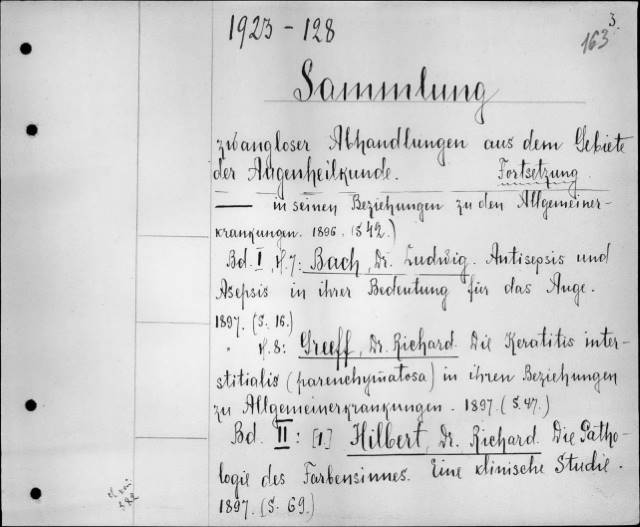 3.
1923 - 128 163
Sammlung
zwangloser Abhandlungen aus dem Gebiete
der Augenheilkunde. Fortsetzung.
— in seinen Beziehungen zu den Allgemeiner-
krankungen. 1896. (S 42.)
Bd. I, H. 7: Bach, Dr. Ludwig. Antisepsis und
Asepsis in ihrer Bedeutung für das Auge.
1897. (S. 16.)
" H. 8: Greeff, Dr. Richard. Die Keratitis inter-
stitialis (parenchymatosa) in ihren Beziehungen
zu Allgemeinerkrankungen. 1897. (S. 47.)
Bd. II: [1.] Hilbert, Dr. Richard. Die Patho-
logie des Farbensinnes. Eine klinische Studie.
1897. (S. 69.)